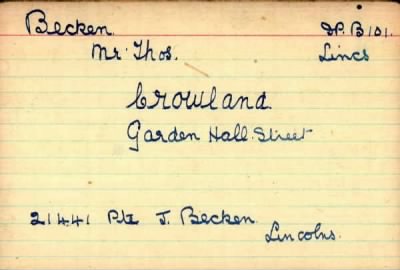 Becken. I.P. B 101.
Mr. Thos. Lincs
Crowland
Garden Hall Street
21441 Pte J. Becken.
Lincolns.